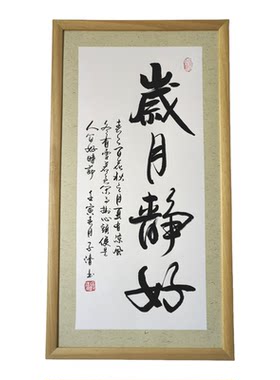 歲月静好
春有百花秋有月夏有凉風
冬有雪若無閑事挂心頭便是
人间好時節
壬寅年月子清书